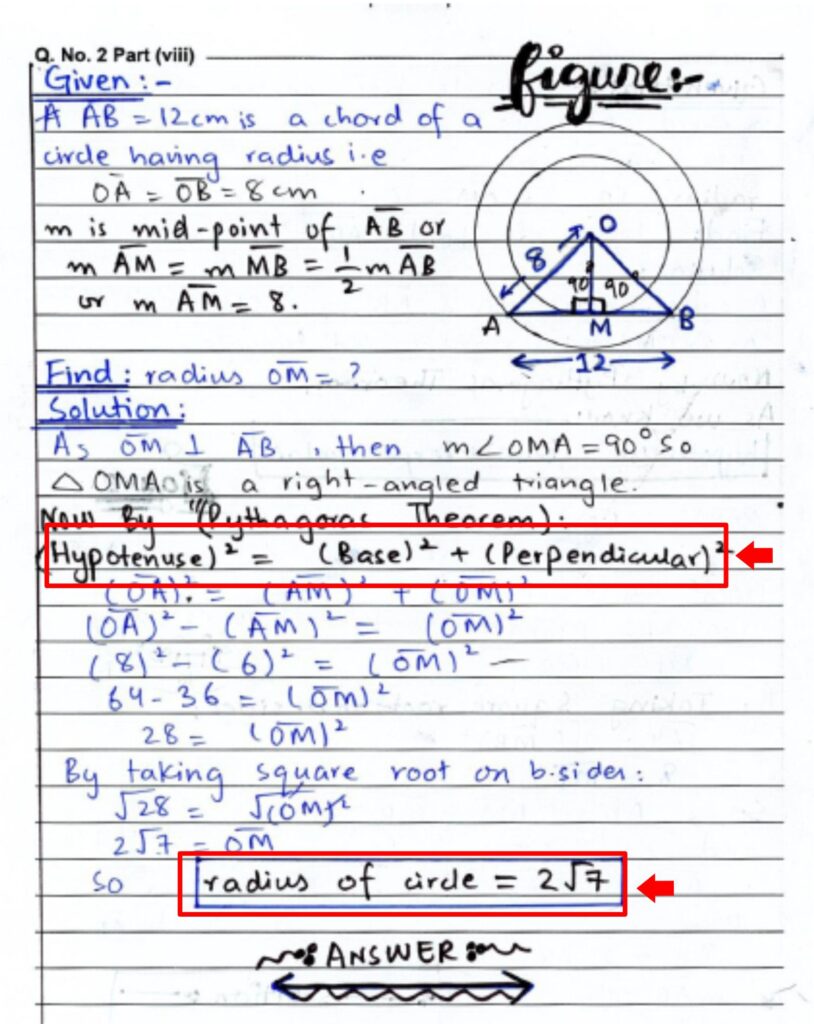 Q. No. 2 Part (viii)
figure:-
Given:-
A AB = 12cm is a chord of a
circle having radius i.e
OA = OB = 8 cm
m is mid-point of AB or
m AM = m MB = 1/2 m AB
or m AM = 8.
O
8
90° 90°
A M B
12
Find: radius OM = ?
Solution:
As OM ⊥ AB, then m∠OMA = 90° so
△ OMA is a right-angled triangle.
Now By "(Pythagoras Theorem):
(Hypotenuse)² = (Base)² + (Perpendicular)²
(OA)² = (AM)² + (OM)²
(OA)² - (AM)² = (OM)²
(8)² - (6)² = (OM)²
64 - 36 = (OM)²
28 = (OM)²
By taking square root on b.sides:
√28 = √(OM)²
2√7 = OM
So radius of circle = 2√7
ANSWER